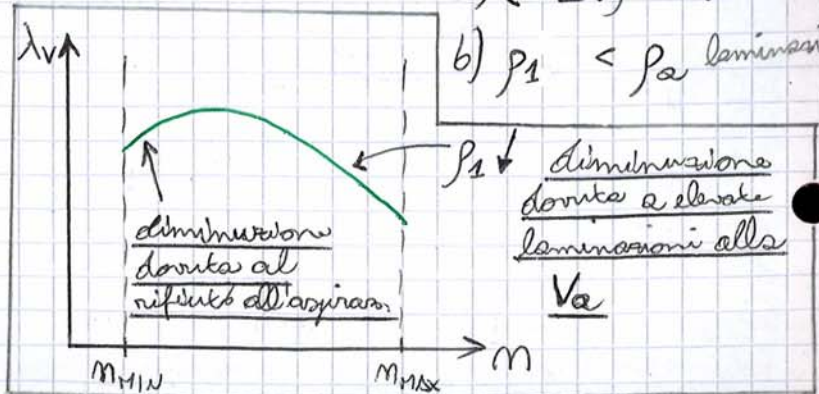 λv
b) ρ1 < ρa laminazi
ρ1 ↓
diminuzione
dovuta a elevate
laminazioni alla
Va
diminuzione
dovuta al
rifiuto all'aspiraz.
nMIN
nMAX
n